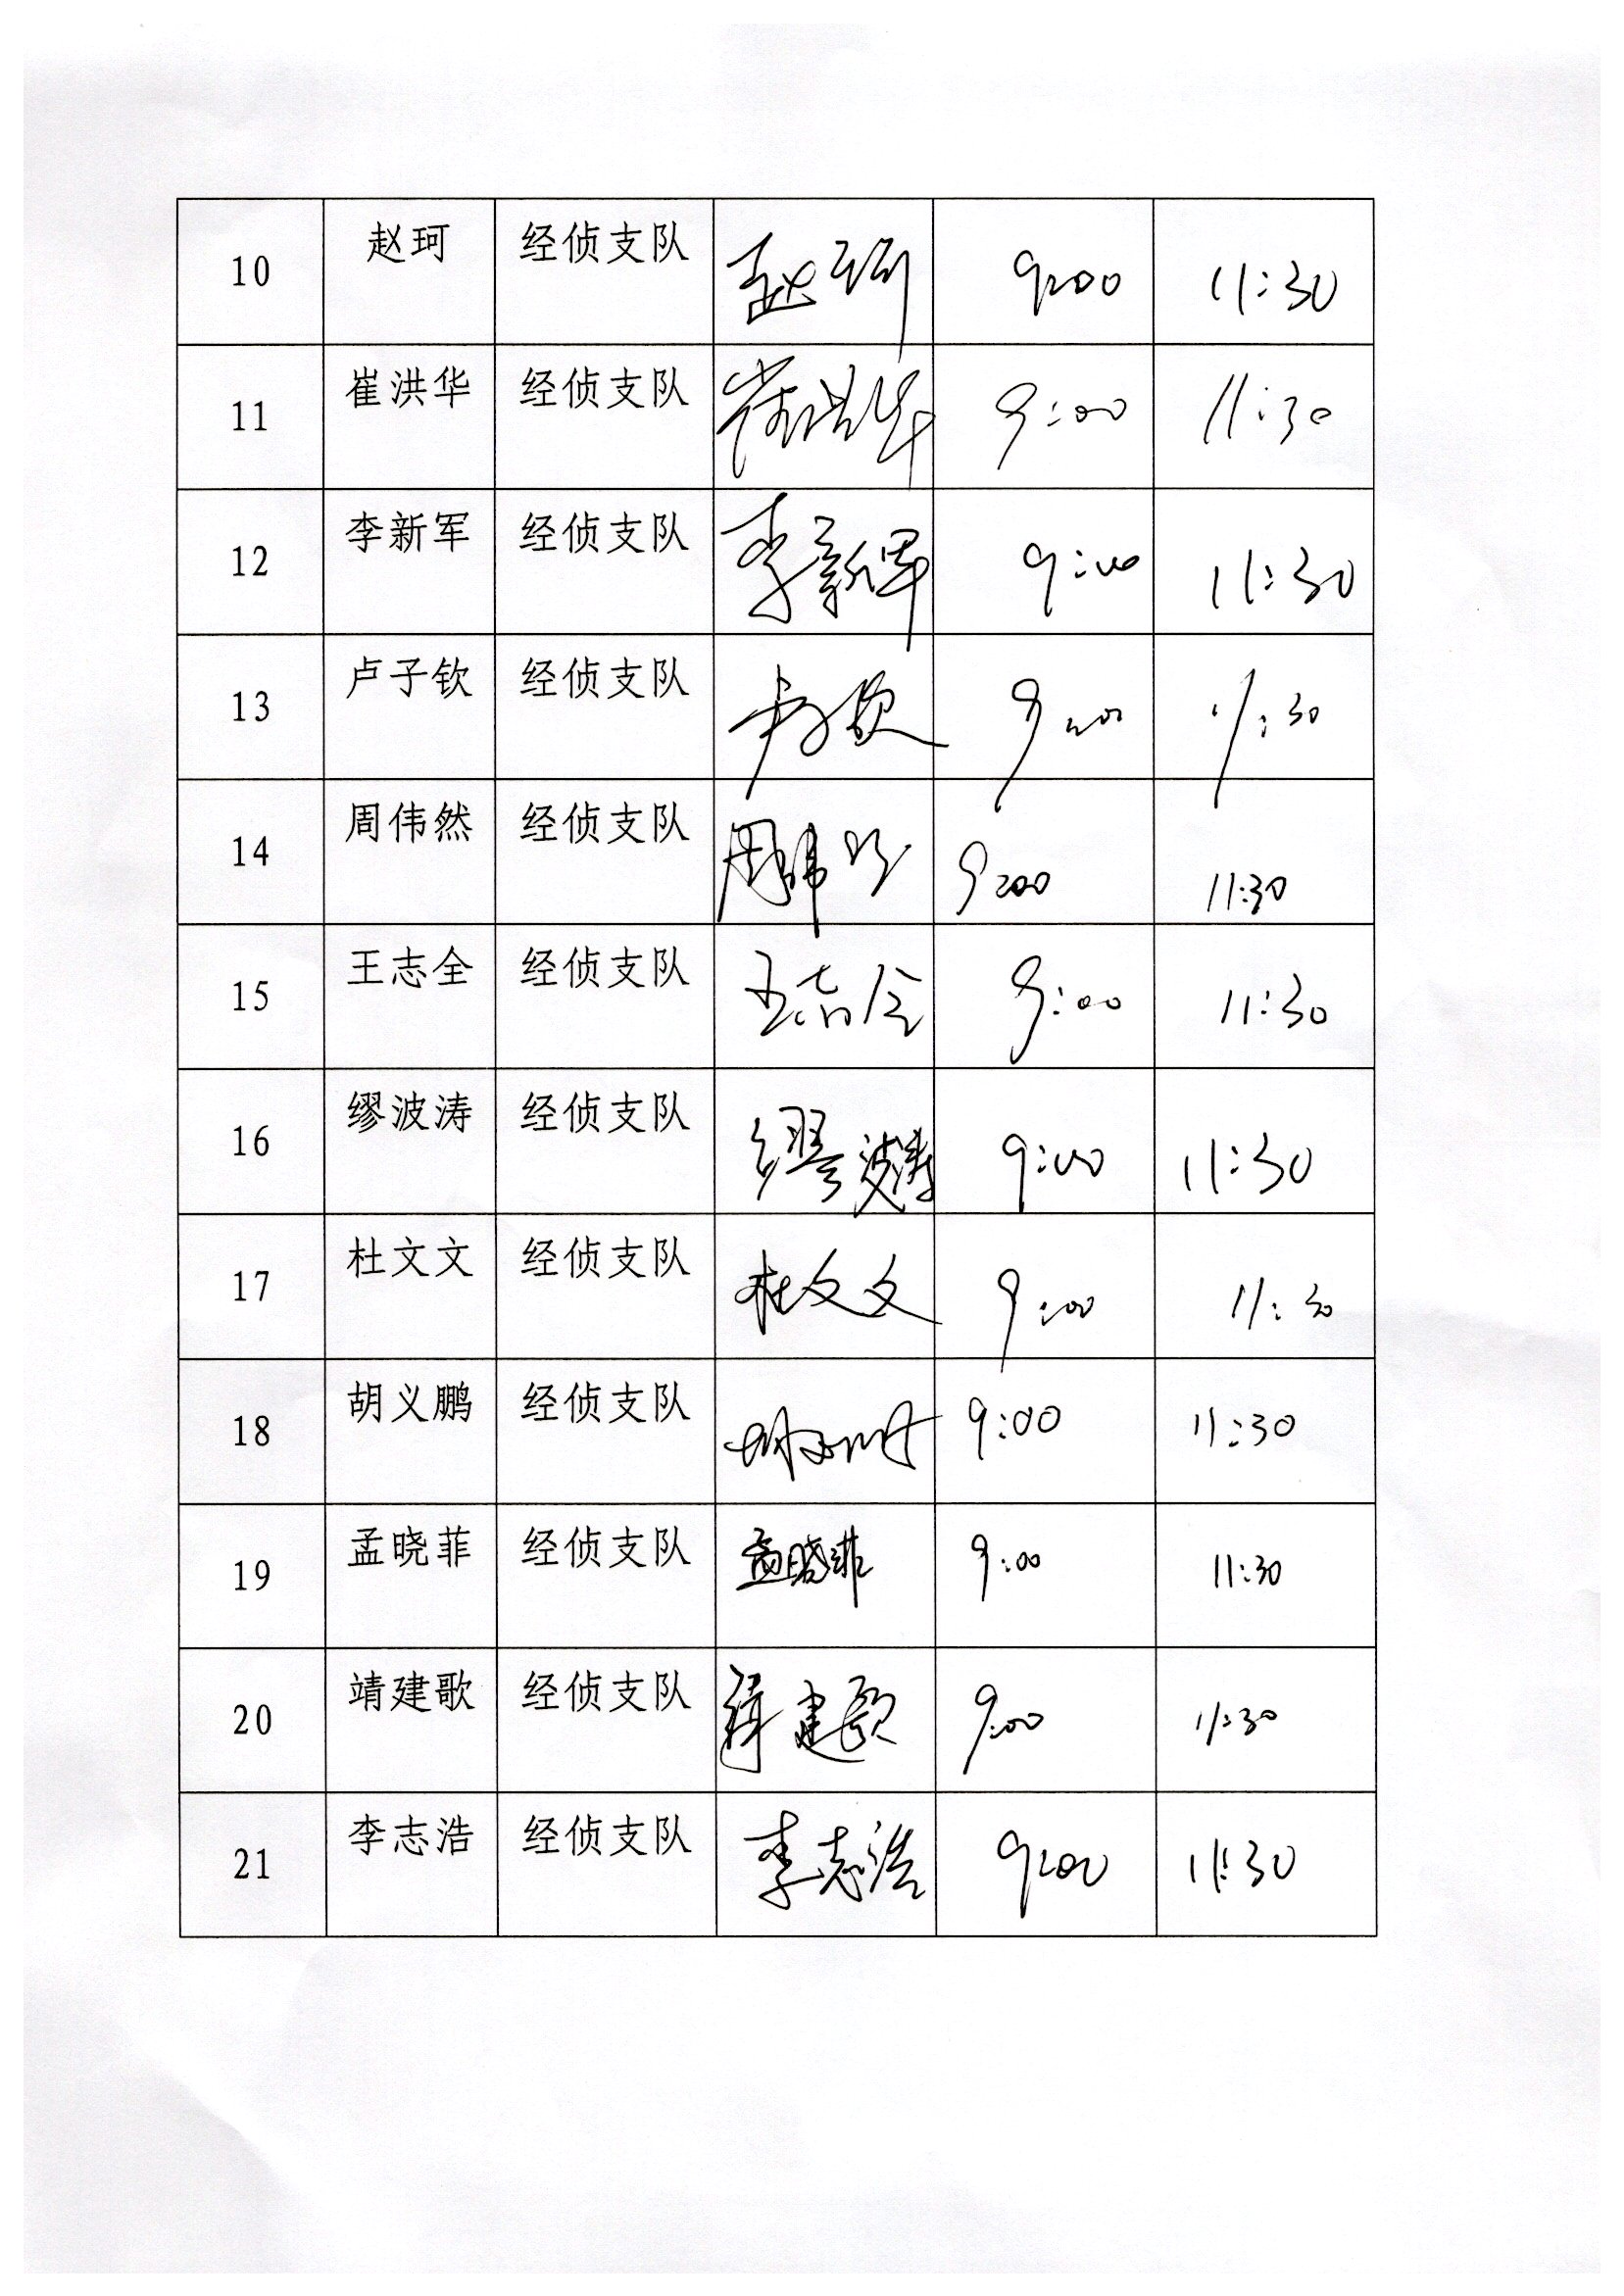 10 赵珂 经侦支队 赵珂 9:00 11:30
11 崔洪华 经侦支队 崔洪华 9:00 11:30
12 李新军 经侦支队 李新军 9:00 11:30
13 卢子钦 经侦支队 卢子钦 9:00 11:30
14 周伟然 经侦支队 周伟然 9:00 11:30
15 王志全 经侦支队 王志全 9:00 11:30
16 缪波涛 经侦支队 缪波涛 9:00 11:30
17 杜文文 经侦支队 杜文文 9:00 11:30
18 胡义鹏 经侦支队 胡义鹏 9:00 11:30
19 孟晓菲 经侦支队 孟晓菲 9:00 11:30
20 靖建歌 经侦支队 靖建歌 9:00 11:30
21 李志浩 经侦支队 李志浩 9:00 11:30